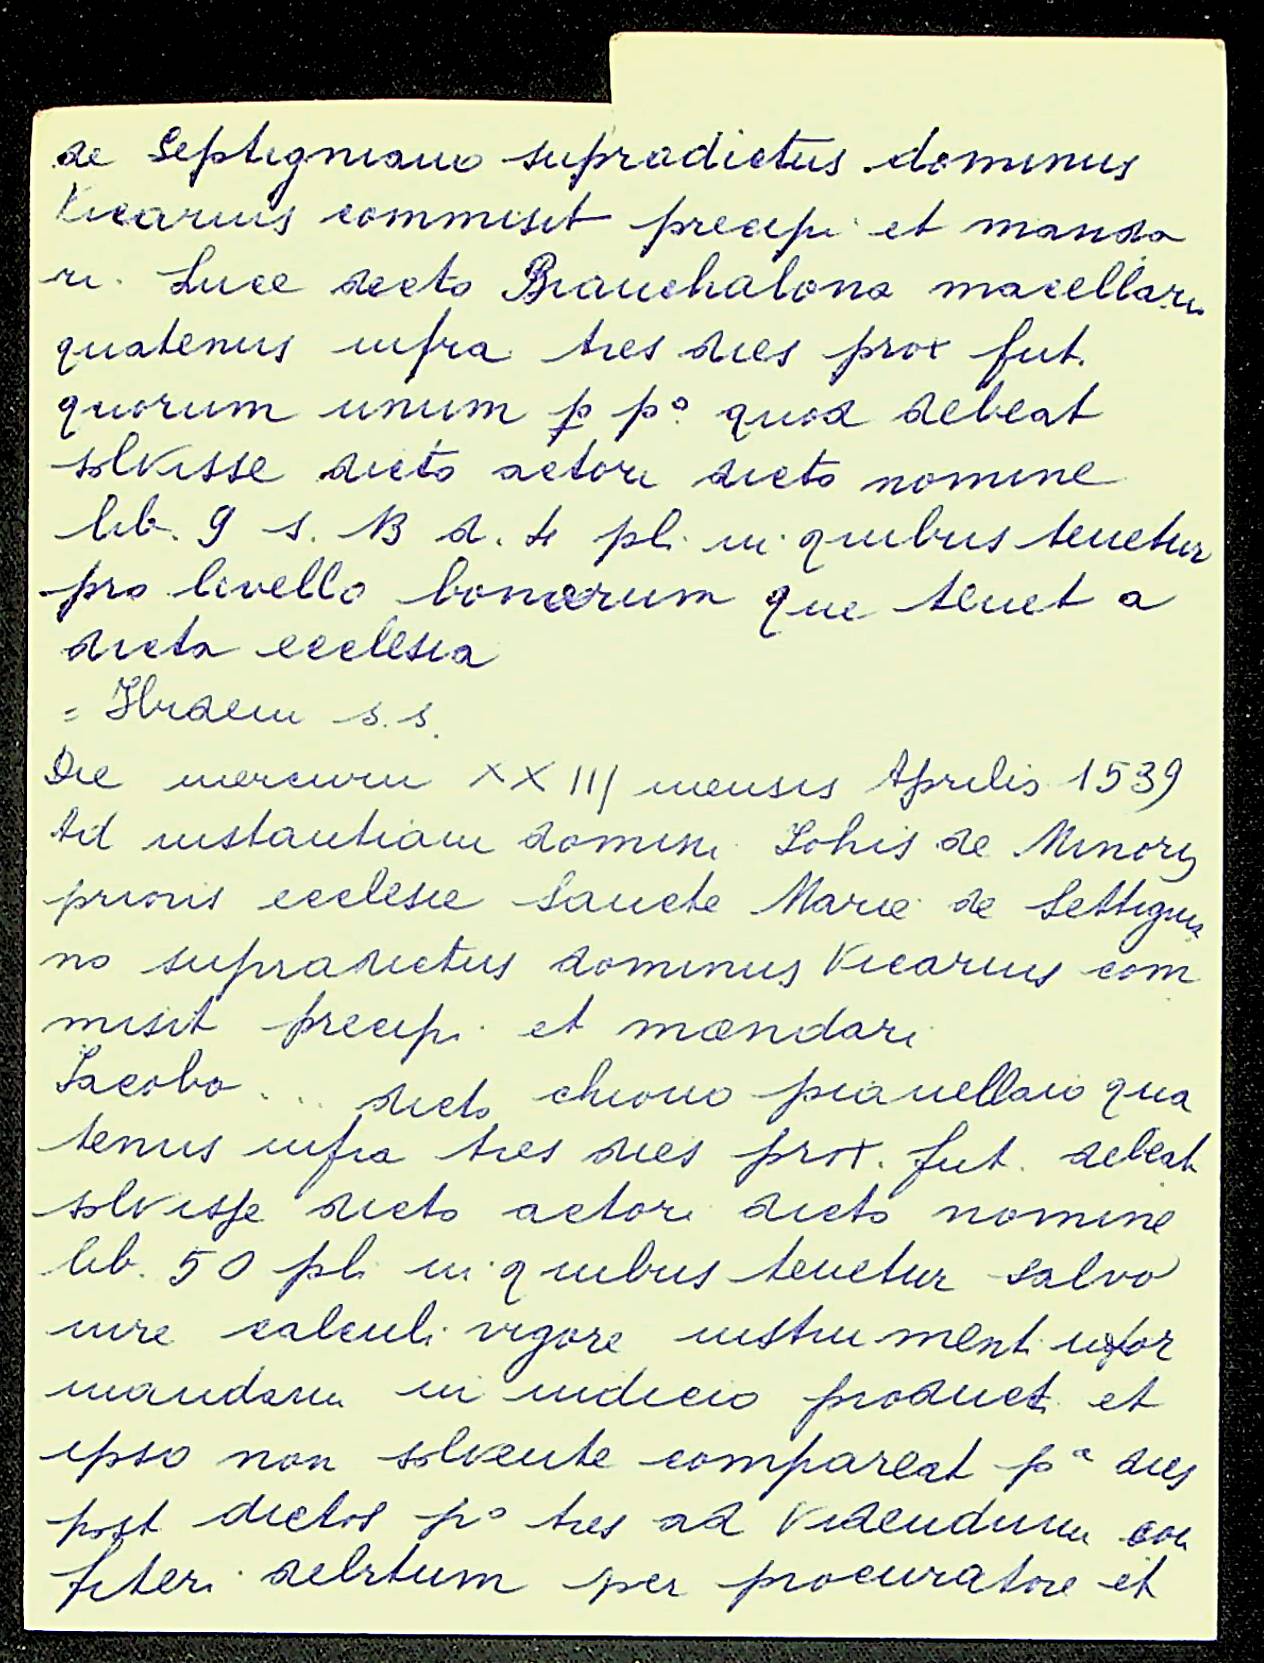 de Septigniano supradictus dominus
Vicarius commisit precipi et manda
ri Luce dicto Branchalona macellari
quatenus infra tres dies prox fut.
quorum unum p pº quod debeat
solvisse dicto actori dicto nomine
lib. 9 s. 13 d. 4 pli in quibus tenetur
pro livello bonorum que tenet a
dicta ecclesia
= Ibidem s.s.
Die mercurii XXIII mensis Aprilis 1539
Ad instantiam domini Johis de Minorij
prioris ecclesie Sancte Marie de Settigna
no supradictus dominus Vicarius com
misit precipi et mandari
Jacobo ... dicto chiono pianellaio qua
tenus infra tres dies prox. fut. debeat
solvisse dicto actori dicto nomine
lib. 50 pli in quibus tenetur salvo
iure calculi vigore instrumenti infor
mandam in iudicio producti et
ipso non solvente compareat pª dies
post dictos pº tres ad videndum con
fiteri debitum per procuratore et